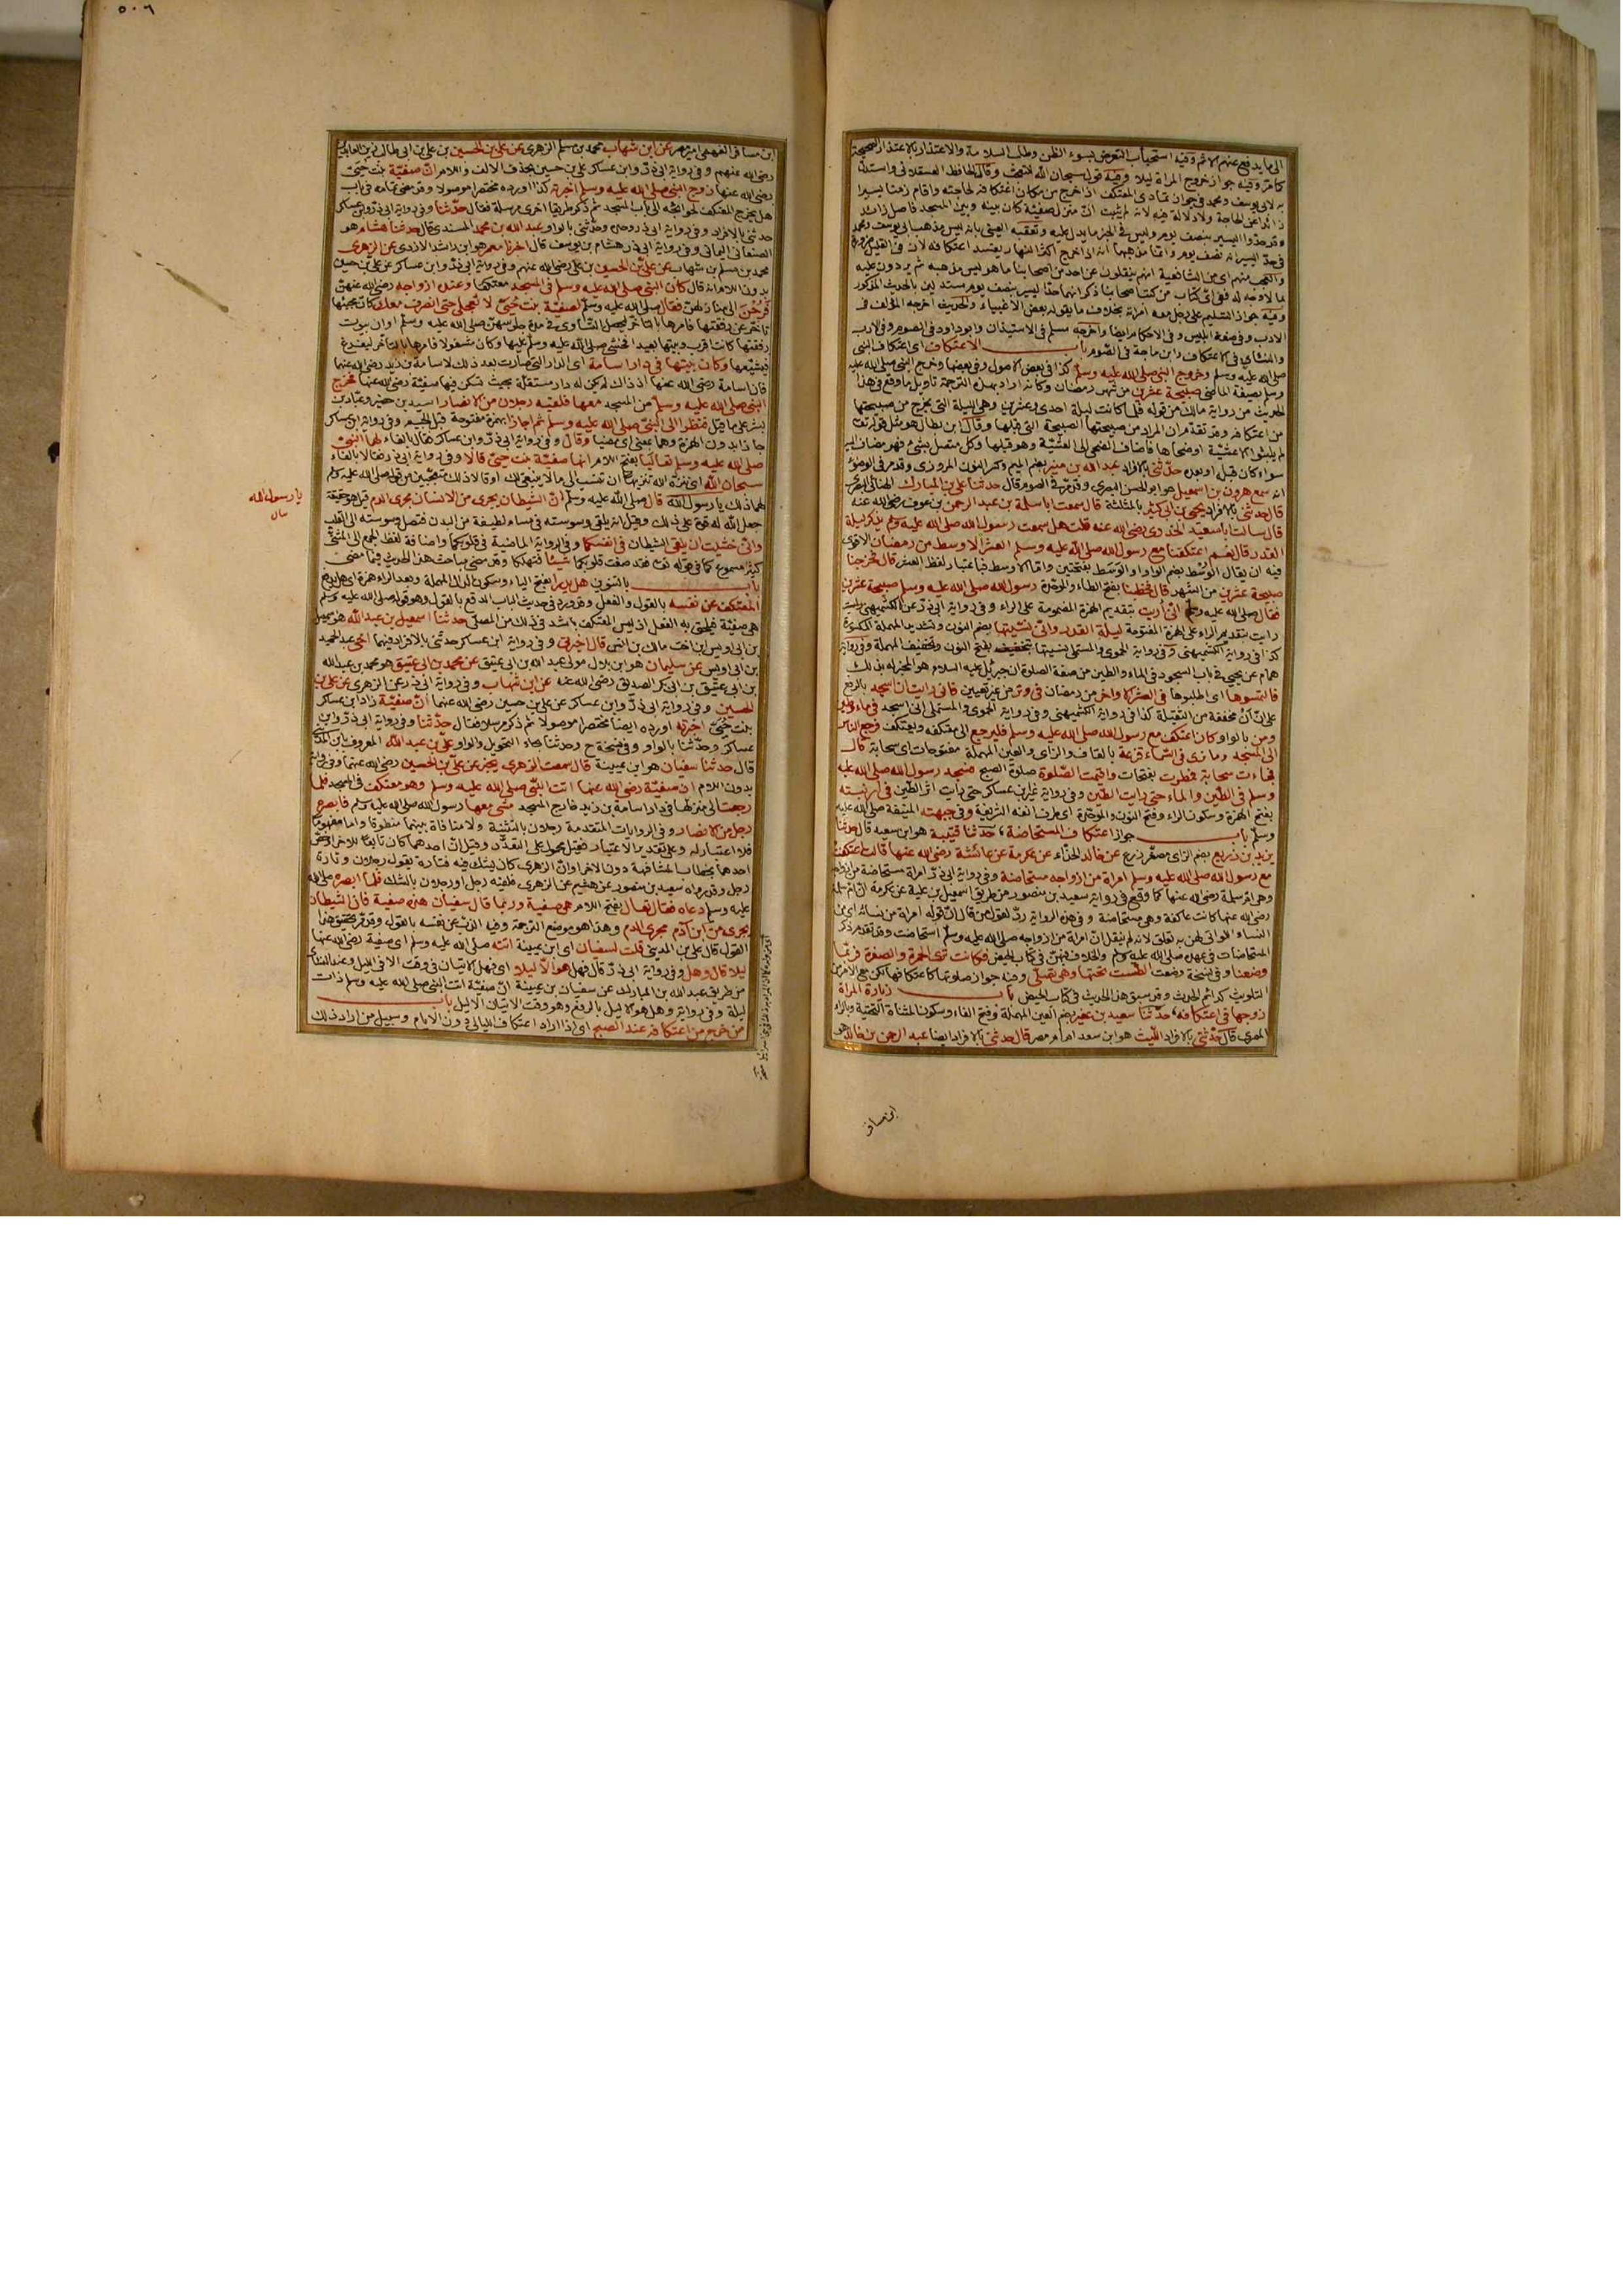 الى ما يدفع عنهم الاثم وفيه استحباب التعرض لسوء الظن وطلب السلامة والاعتذار بالاعتذار الصحيحة
كما مرّ وفيه جواز خروج المراة ليلا وفيه قول سبحان الله للتعجب وقال الحافظ العسقلانى واستدلّ
به لابى يوسف ومحمد فى جواز تمادى المعتكف اذا خرج من مكان اعتكافه لحاجته واقام زمنا يسيرا
زائدا عن الحاجة ولا دلالة فيه لانه لم يثبت انّ منزل صفيّة كان بينه وبين المسجد فاصل زائد
وقد حدّوا اليسير بنصف يوم وليس فى الخبر ما يدل عليه وتعقبه العينى بانه ليس مذهب ابى يوسف ومحمد
فى حدّ اليسير انه نصف يوم وانما مذهبهما انه اذا خرج اكثر النهار يفسد اعتكافه لان فى القليل ضرورة
والعجب منهم اى من الشافعية انهم ينقلون عن احد من اصحابنا ما هو ليس مذهبه ثم يردون عليه
بما لا وجه له ففى اىّ كتاب من كتب اصحابنا ذكر انهما حدّا اليسير بنصف يوم مستدلين بالحديث المذكور
وفيه جواز التسليم على رجل معه امراته بخلاف ما يقوله بعض الاغبياء والحديث اخرجه المؤلف فى
الادب وفى صفة ابليس وفى الاحكام ايضا واخرجه مسلم فى الاستيذان وابو داود فى الصوم وفى الادب
والنسائى فى الاعتكاف وابن ماجة فى الصّوم باب الاعتكاف اى اعتكاف النبى
صلى الله عليه وسلم وخروج النبى صلى الله عليه وسلم كذا فى بعض الاصول وفى بعضها وخرج النبى صلى الله عليه
وسلم بصيغة الماضى صبيحة عشرين من شهر رمضان وكانه اراد بهذه الترجمة تاويل ما وقع فى هذا
الحديث من رواية مالك من قوله فلما كانت ليلة احدى وعشرين وهى الليلة التى يخرج من صبيحتها
من اعتكافه وقد تقدّم ان المراد من صبيحتها الصبيحة التى قبلها وقال ابن بطال هو مثل قوله تعالى
لم يلبثوا الا عشيّة او ضحاها فاضاف الضحى الى العشيّة وهو قبلها وكل متصل بشىء فهو مضاف اليه
سواء كان قبله او بعده حدّثنى بالافراد عبد الله بن منير بضم الميم وكسر النون المروزى وقد مر فى الوضوء
انه سمع هرون بن اسمعيل هو ابو الحسن البصرى وقد مرّ فى الصوم قال حدثنا على بن المبارك الهنائى البصرى
قال حدثنى بالافراد يحيى بن ابى كثير بالمثلثة قال سمعت ابا سلمة بن عبد الرحمن بن عوف رضى الله عنه
قال سالت ابا سعيد الخدرى رضى الله عنه قلت هل سمعت رسول الله صلى الله عليه وسلم يذكر ليلة
القدر قال نعم اعتكفنا مع رسول الله صلى الله عليه وسلم العشر الاوسط من رمضان الاقوى
فيه ان يقال الوُسُط بضم الواو او الوَسَط بفتحتين واما الاوسط فباعتبار لفظ العشر قال فخرجنا
صبيحة عشرين من الشهر قال فخطبنا بفتح الطاء والموحّدة رسول الله صلى الله عليه وسلم صبيحة عشرين
فقال صلى الله عليه وسلم انى أريت بتقديم الهمزة المضمومة على الراء وفى رواية ابى ذرّ عن الكشميهنى
رايت بتقديم الراء على الهمزة المفتوحة ليلة القدر وانّى نسّيتها بضم النون وتشديد المهملة المكسورة
كذا فى رواية الكشميهنى وفى رواية الحموى والمستملى نسيتها بفتح النون وتخفيف المهملة وفى رواية
همام عن يحيى فى باب السجود فى الماء والطين من صفة الصلوة ان جبريل عليه السلام هو المخبر له بذلك
فالتمسوها اى اطلبوها فى العشر الاواخر من رمضان فى وتر من غير تعيين فانى رايت ان اسجد بالرفع
على انّ انْ مخففة من الثقيلة كذا فى رواية الكشميهنى وفى رواية الحموى والمستملى انى اسجد فى ماء وطين
ومن بالواو كان اعتكف مع رسول الله صلى الله عليه وسلم فليرجع الى معتكفه ويعتكف فرجع الناس
الى المسجد وما نرى فى السّماء قزعة بالقاف والزاى والعين المهملة مفتوحات اى سحابة قال
فجاءت سحابة فمطرت بفتحات واقيمت الصّلوة صلوة الصبح فسجد رسول الله صلى الله عليه
وسلم فى الطّين والماء حتى رايت الطّين وفى رواية غير ابن عساكر حتى رايت اثر الطين فى ارنبته
بفتح الهمزة وسكون الراء وفتح النون والموحّدة اى طرف انفه الشريفة وفى جبهته المنيفة صلى الله عليه
وسلّم باب جواز اعتكاف المستحاضة حدّثنا قتيبة هو ابن سعيد قال حدثنا
يزيد بن زريع بضم الزاى مصغّر زرع عن خالد الحذّاء عن عكرمة عن عائشة رضى الله عنها قالت اعتكفت
مع رسول الله صلى الله عليه وسلم امراة من ازواجه مستحاضة وفى رواية ابى ذرّ امراة مستحاضة من ازواجه
وهى ام سلمة رضى الله عنها كما وقع فى رواية سعيد بن منصور من طريق اسمعيل بن علية عن عكرمة ان ام سلمة
رضى الله عنها كانت عاكفة وهى مستحاضة وفى هذه الرواية ردّ لقول من قال ان قوله امراة من نسائه اى من
النساء اللواتى لهن به تعلق لانه لم ينقل انّ امراة من ازواجه صلى الله عليه وسلم استحاضت وقد تقدم ذكر
المستحاضات فى عهده صلى الله عليه وسلم والخلاف فيهنّ فى كتاب الحيض فكانت ترى الحمرة والصفرة فربّما
وضعنا وفى نسخة وضعت الطّست تحتها وهى تصلّى وفيه جواز صلوتها كاعتكافها لكن مع الامن من
التلويث كدائم الحدث وقد سبق هذا الحديث فى كتاب الحيض باب زيارة المراة
زوجها فى اعتكافه حدّثنا سعيد بن عفير بضم العين المهملة وفتح الفاء وسكون المثناة التحتية وبالراء
المصرى قال حدّثنى بالافراد الليث هو ابن سعد امام مصر قال حدثنى بالافراد ايضا عبد الرحمن بن خالد هو
ابن مسافر
٥٠٦
ابن مسافر الفهمى امير مصر عن ابن شهاب محمد بن مسلم الزهرى عن على بن الحسين بن على بن ابى طالب زين العابدين
رضى الله عنهم وفى رواية ابى ذرّ وابن عساكر على بن حسين بحذف الالف واللام انّ صفيّة بنت حيىّ
رضى الله عنها زوج النبى صلى الله عليه وسلم اخبرته كذا اورده مختصرا موصولا وقد مضى بتمامه فى باب
هل يخرج المعتكف لحوائجه الى باب المسجد ثم ذكر طريقا اخرى مرسلة فقال حدّثنا وفى رواية ابى ذرّ وابن عساكر
حدثنى بالافراد وفى رواية ابى ذر وحدثنى بالواو عبد الله بن محمد المسندى قال حدثنا هشام هو
الصنعانى اليمانى وفى رواية ابى ذر هشام بن يوسف قال اخبرنا معمر هو ابن راشد الازدى عن الزهرى
محمد بن مسلم بن شهاب عن علىّ بن الحسين بن على رضى الله عنهم وفى رواية ابى ذرّ وابن عساكر عن على بن حسين
بدون اللام انه قال كان النبى صلى الله عليه وسلم فى المسجد معتكفا وعنده ازواجه رضى الله عنهنّ
فرُحْنَ الى منازلهنّ فقال صلى الله عليه وسلّم لصفيّة بنت حُيىّ لا تعجلى حتى انصرف معك كان مجيئها
تاخّر عن رفقتها فامرها بالتاخّر ليحصل التساوى فى مدة جلوسهنّ صلى الله عليه وسلّم او ان بيوت
رفقتها كانت اقرب وبيتها بعيد فخشى صلى الله عليه وسلّم عليها وكان مشغولا فامرها بالتاخّر ليفرغ
فيشيّعها وكان بيتها فى دار اسامة اى الدار التى صارت بعد ذلك لاسامة بن زيد رضى الله عنهما
فان اسامة رضى الله عنهما اذ ذاك لم يكن له دار مستقلّة بحيث تسكن فيها صفيّة رضى الله عنها فخرج
النبى صلى الله عليه وسلم من المسجد معها فلقيه رجلان من الانصار اسيد بن حضير وعبّاد بن
بشر على ما قيل فنظرا الى النبىّ صلى الله عليه وسلم ثم اجازا بهمزة مفتوحة قبل الجيم وفى رواية ابن عساكر
جازا بدون الهمزة وهما بمعنى اى مضيا وقال وفى رواية ابى ذرّ وابن عساكر فقال بالفاء لهما النبىّ
صلى الله عليه وسلم تعاليا بفتح اللام انها صفيّة بنت حيىّ قالا وفى رواية ابى ذر فقالا بالفاء
سبحان الله اى ننزّه الله تنزيها ان تنسب الى ما لا ينبغى لك او قالا ذلك متعجّبين من قوله صلى الله عليه وسلم
لهما ذلك يا رسول الله قال صلى الله عليه وسلّم انّ الشيطان يجرى من الانسان مجرى الدم قيل هو حقيقة
جعل الله له قوة على ذلك وقيل انه يلقى وسوسته فى مسام لطيفة من البدن فتصل وسوسته الى القلب
وانّى خشيت ان يلقى الشيطان فى انفسكما وفى الرواية الماضية فى قلوبكما واضافة لفظ الجمع الى المثنّى
كثير مسموع كما فى قوله تعالى فقد صغت قلوبكما شيئا فتهلكا وقد مضى مباحث هذا الحديث فيما مضى
باب بالتنوين هل يدرأ بفتح الياء وسكون الدال المهملة وبعد الراء همزة اى هل يدفع
المعتكف عن نفسه بالقول والفعل وقد ورد فى حديث الباب الدفع بالقول وهو قوله صلى الله عليه وسلم
هى صفيّة فيلحق به الفعل اذ ليس المعتكف باشد فى ذلك من المصلّى حدثنا اسمعيل بن عبد الله هو اسمعيل
بن ابى اويس ابن اخت مالك بن انس قال اخبرنى وفى رواية ابن عساكر حدثنى بالافراد فيهما اخى عبد الحميد
بن ابى اويس عن سليمان هو ابن بلال مولى عبد الله بن ابى عتيق عن محمد بن ابى عتيق هو محمد بن عبد الله
بن ابى عتيق بن ابى بكر الصديق رضى الله عنه عن ابن شهاب وفى رواية ابى ذر عن الزهرى عن على بن
الحسين وفى رواية ابى ذرّ وابن عساكر عن على بن حسين رضى الله عنهما انّ صفيّة زاد ابن عساكر
بنت حُيَىّ اخبرته اورده ايضا مختصرا موصولا ثم ذكر مرسلا فقال حدّثنا وفى رواية ابى ذرّ وابن
عساكر وحدّثنا بالواو وفى نسخة ح وحدثنا بحاء التحويل والواو علىّ بن عبد الله المعروف بابن المدينى
قال حدثنا سفيان هو ابن عيينة قال سمعت الزهرى يخبر عن علىّ بن الحسين رضى الله عنهما وفى رواية
بدون اللام ان صفيّة رضى الله عنها اتت النبىّ صلى الله عليه وسلم وهو معتكف فى المسجد فلما
رجعت الى منزلها فى دار اسامة بن زيد خارج المسجد مشى معها رسول الله صلى الله عليه وسلم فابصره
رجل من الانصار وفى الروايات المتقدمة رجلان بالتثنية ولا منافاة بينهما منطوقا واما مفهوما
فلا اعتبار له وعلى تقدير الاعتبار فقيل محمول على التعدّد وقيل انّ احدهما كان تابعا للاخر او خصّ
احدهما بخطاب المشافهة دون الاخر او انّ الزهرى كان يشكّ فيه فتارة يقول رجلان وتارة
رجل وقد رواه سعيد بن منصور عن هشيم عن الزهرى فلقيه رجل او رجلان بالشك فلما ابصره صلى الله
عليه وسلم دعاه فقال تعال بفتح اللام هى صفية وربما قال سفيان هذه صفية فان الشيطان
يجرى من ابن آدم مجرى الدم وهذا هو موضع الترجمة وفيه الذبّ عن نفسه بالقول وقد مرّ تحقيق هذا
القول قال على بن المدينى قلت لسفيان اى ابن عيينة اتته صلى الله عليه وسلم اى صفية رضى الله عنها
ليلا قال وهل وفى رواية ابى ذرّ قال فهل هو الّا ليلا اى فهل الاتيان فى وقت الا فى الليل وعند النسائى
من طريق عبد الله بن المبارك عن سفيان بن عيينة انّ صفيّة اتت النبى صلى الله عليه وسلم ذات
ليلة وفى رواية وهل هو الا ليل بالرفع وهو وقت الاتيان الا ليل باب
من خرج من اعتكافه عند الصبح اى اذا اراد اعتكاف الليالى دون الايام وسبيل من اراد ذلك
يا رسول الله